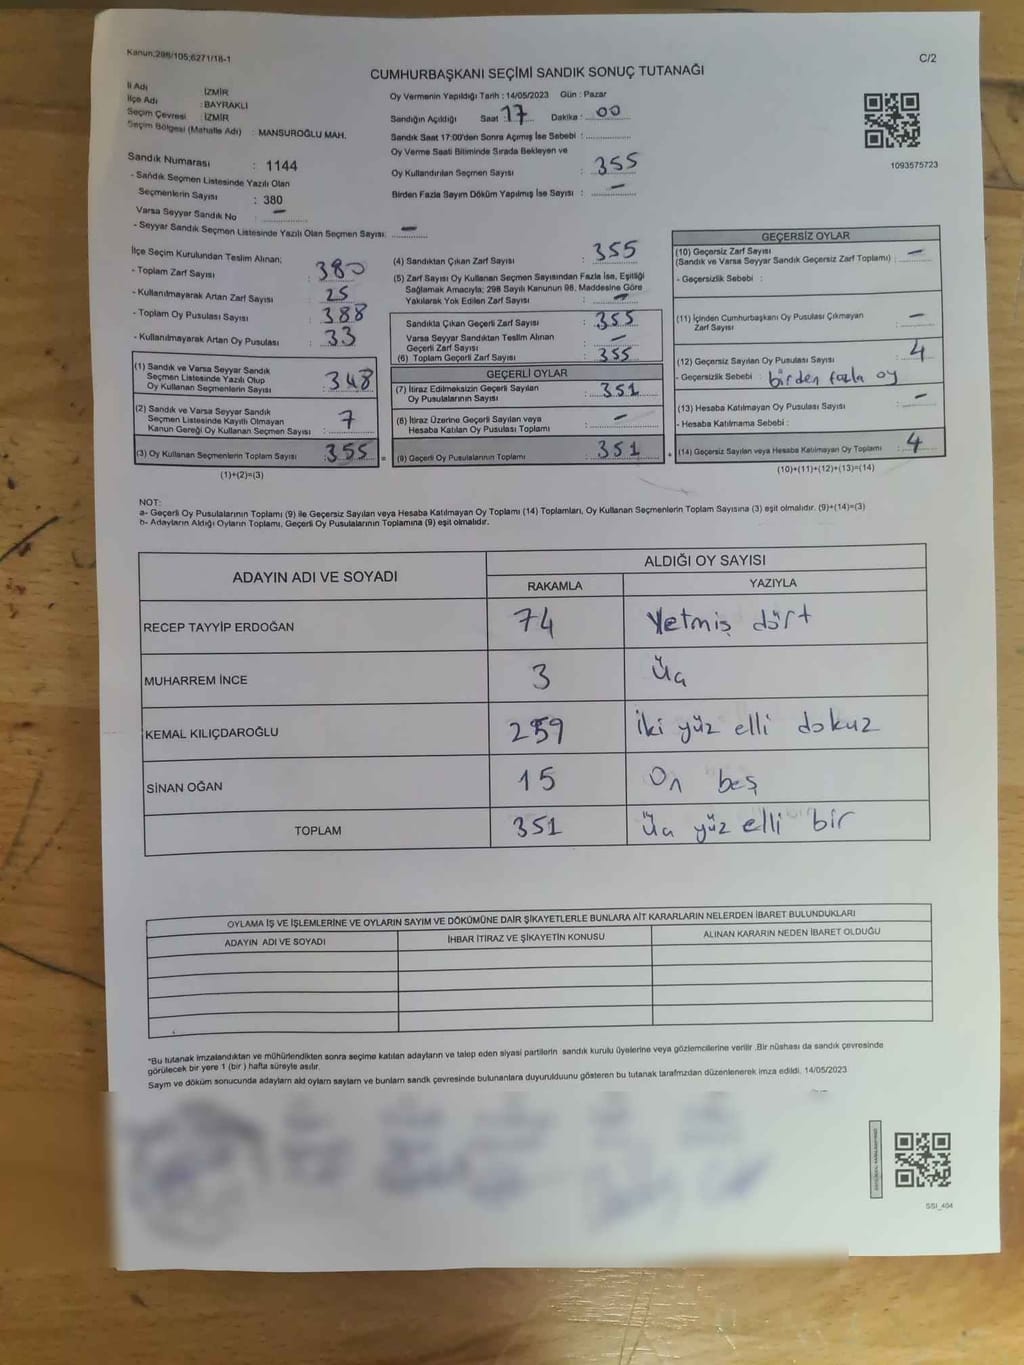 Kanun:298/105;6271/18-1
C/2
CUMHURBAŞKANI SEÇİMİ SANDIK SONUÇ TUTANAĞI
İl Adı : İZMİR
İlçe Adı : BAYRAKLI
Seçim Çevresi : İZMİR
Seçim Bölgesi (Mahalle Adı) : MANSUROĞLU MAH.
Sandık Numarası : 1144
- Sandık Seçmen Listesinde Yazılı Olan
Seçmenlerin Sayısı : 380
Varsa Seyyar Sandık No : —
- Seyyar Sandık Seçmen Listesinde Yazılı Olan Seçmen Sayısı: —
Oy Vermenin Yapıldığı Tarih : 14/05/2023 Gün : Pazar
Sandığın Açıldığı Saat : 17 Dakika : 00
Sandık Saat 17:00'den Sonra Açımış İse Sebebi :
Oy Verme Saati Bitiminde Sırada Bekleyen ve
Oy Kullandırılan Seçmen Sayısı : 355
Birden Fazla Sayım Döküm Yapılmış İse Sayısı : —
1093575723
İlçe Seçim Kurulundan Teslim Alınan;
- Toplam Zarf Sayısı : 380
- Kullanılmayarak Artan Zarf Sayısı : 25
- Toplam Oy Pusulası Sayısı : 388
- Kullanılmayarak Artan Oy Pusulası : 33
(1) Sandık ve Varsa Seyyar Sandık
Seçmen Listesinde Yazılı Olup
Oy Kullanan Seçmenlerin Sayısı : 348
(2) Sandık ve Varsa Seyyar Sandık
Seçmen Listesinde Kayıtlı Olmayan
Kanun Gereği Oy Kullanan Seçmen Sayısı : 7
(3) Oy Kullanan Seçmenlerin Toplam Sayısı : 355
(1)+(2)=(3)
(4) Sandıktan Çıkan Zarf Sayısı : 355
(5) Zarf Sayısı Oy Kullanan Seçmen Sayısından Fazla İse, Eşitliği
Sağlamak Amacıyla; 298 Sayılı Kanunun 98. Maddesine Göre
Yakılarak Yok Edilen Zarf Sayısı : —
Sandıkta Çıkan Geçerli Zarf Sayısı : 355
Varsa Seyyar Sandıktan Teslim Alınan
Geçerli Zarf Sayısı : —
(6) Toplam Geçerli Zarf Sayısı : 355
GEÇERLİ OYLAR
(7) İtiraz Edilmeksizin Geçerli Sayılan
Oy Pusulalarının Sayısı : 351
(8) İtiraz Üzerine Geçerli Sayılan veya
Hesaba Katılan Oy Pusulası Toplamı : —
= (9) Geçerli Oy Pusulalarının Toplamı : 351
GEÇERSİZ OYLAR
(10) Geçersiz Zarf Sayısı
(Sandık ve Varsa Seyyar Sandık Geçersiz Zarf Toplamı) : —
- Geçersizlik Sebebi :
(11) İçinden Cumhurbaşkanı Oy Pusulası Çıkmayan
Zarf Sayısı : —
(12) Geçersiz Sayılan Oy Pusulası Sayısı : 4
- Geçersizlik Sebebi : birden fazla oy
(13) Hesaba Katılmayan Oy Pusulası Sayısı : —
- Hesaba Katılmama Sebebi :
+ (14) Geçersiz Sayılan veya Hesaba Katılmayan Oy Toplamı : 4
(10)+(11)+(12)+(13)=(14)
NOT:
a- Geçerli Oy Pusulalarının Toplamı (9) ile Geçersiz Sayılan veya Hesaba Katılmayan Oy Toplamı (14) Toplamları, Oy Kullanan Seçmenlerin Toplam Sayısına (3) eşit olmalıdır. (9)+(14)=(3)
b- Adayların Aldığı Oyların Toplamı, Geçerli Oy Pusulalarının Toplamına (9) eşit olmalıdır.
ADAYIN ADI VE SOYADI ALDIĞI OY SAYISI
RAKAMLA YAZIYLA
RECEP TAYYİP ERDOĞAN 74 Yetmiş dört
MUHARREM İNCE 3 Üç
KEMAL KILIÇDAROĞLU 259 İki yüz elli dokuz
SİNAN OĞAN 15 On beş
TOPLAM 351 Üç yüz elli bir
OYLAMA İŞ VE İŞLEMLERİNE VE OYLARIN SAYIM VE DÖKÜMÜNE DAİR ŞİKAYETLERLE BUNLARA AİT KARARLARIN NELERDEN İBARET BULUNDUKLARI
ADAYIN ADI VE SOYADI İHBAR İTİRAZ VE ŞİKAYETİN KONUSU ALINAN KARARIN NEDEN İBARET OLDUĞU
*Bu tutanak imzalandıktan ve mühürlendikten sonra seçime katılan adayların ve talep eden siyasi partilerin sandık kurulu üyelerine veya gözlemcilerine verilir .Bir nüshası da sandık çevresinde
görülecek bir yere 1 (bir ) hafta süreyle asılır.
Saym ve döküm sonucunda adayların ald oyların saylarn ve bunlarn sandk çevresinde bulunanlara duyurulduunu gösteren bu tutanak tarafmzdan düzenlenerek imza edildi. 14/05/2023
SSI_404